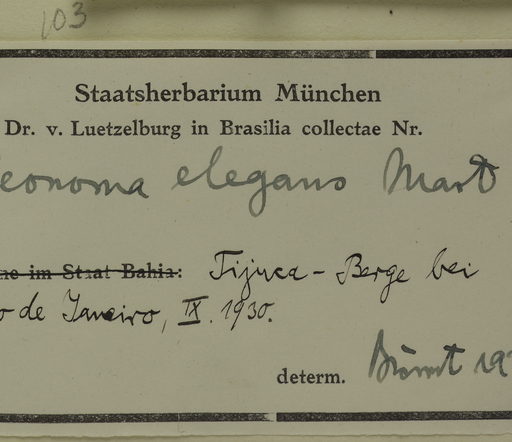 103
Staatsherbarium München
Dr. v. Luetzelburg in Brasilia collectae Nr.
eonoma elegans Mart
ne im Staat Bahia: Tijuca - Berge bei
o de Janeiro, IX. 1930.
determ. Burret 19